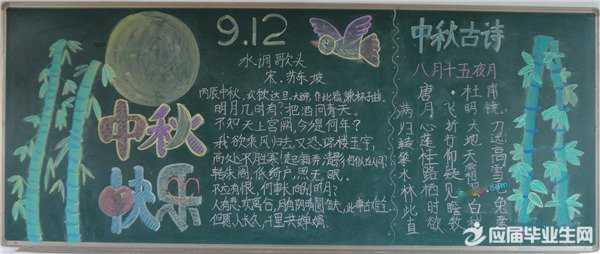 中秋
快乐
9.12
水调歌头
宋.苏东坡
丙辰中秋,欢饮达旦,大醉,作此篇,兼怀子由。
明月几时有?把酒问青天。
不知天上宫阙,今夕是何年?
我欲乘风归去,又恐琼楼玉宇,
高处不胜寒,起舞弄清影,何似在人间
转朱阁,低绮户,照无眠。
不应有恨,何事长向别时圆?
人有悲欢离合,月有阴晴圆缺,此事古难全
但愿人长久,千里共婵娟。
中秋古诗
八月十五夜月
唐·杜甫
满月飞明镜
归心折大刀
转蓬行地远
攀桂仰天高
水路疑霜雪
林栖见羽毛
此时瞻白兔
直欲
应届毕业生网